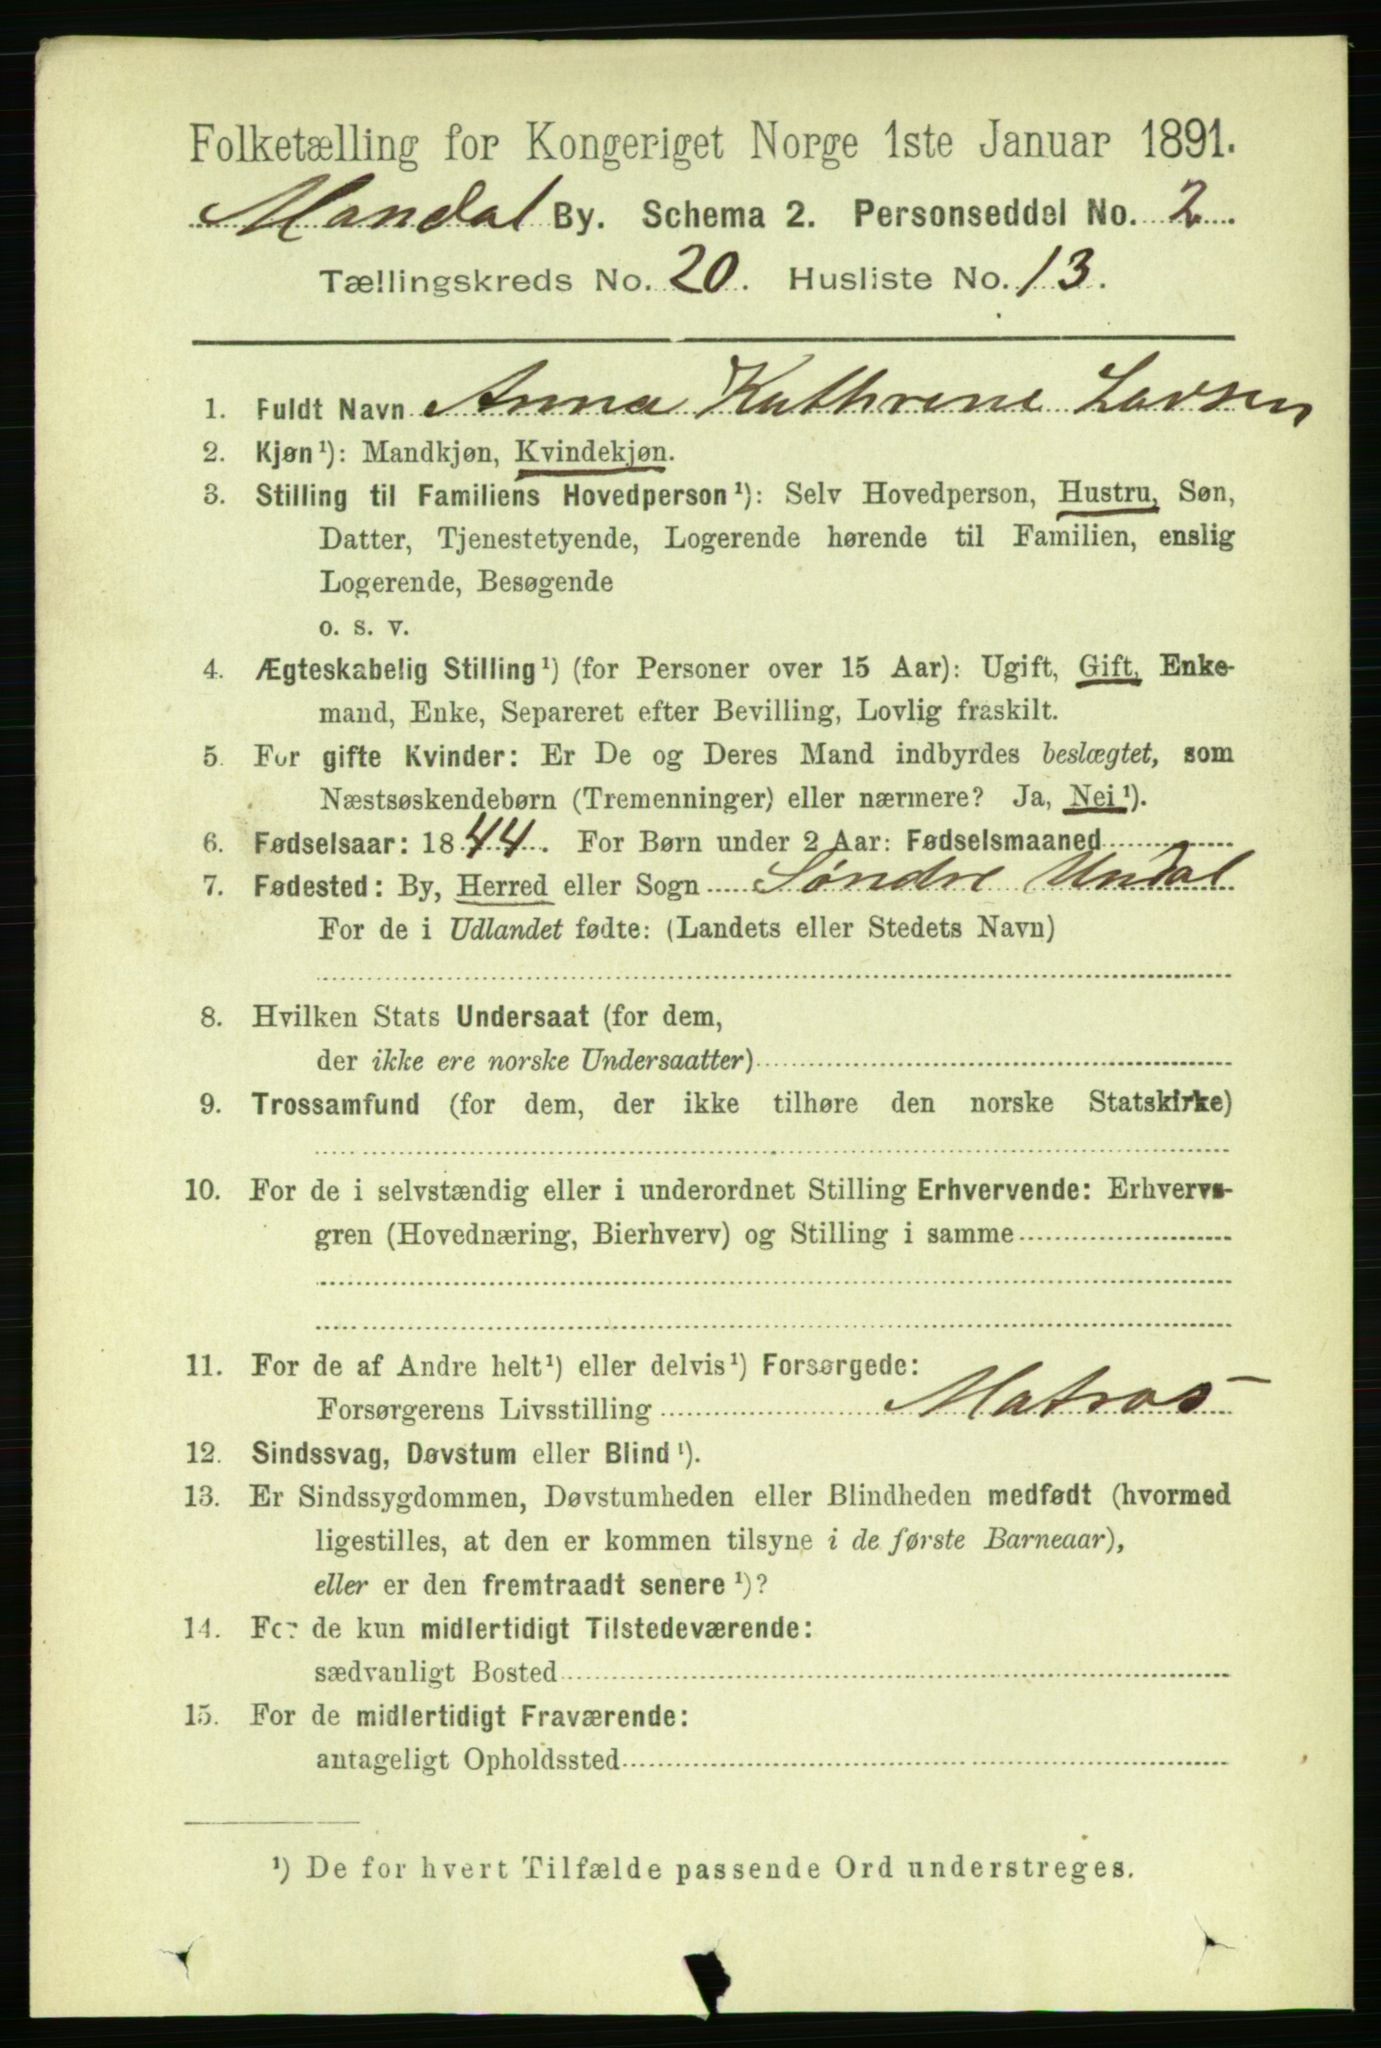 Folketælling for Kongeriget Norge 1ste Januar 1891.
Mandal By. Schema 2. Personseddel No. 2
Tællingskreds No. 20. Husliste No. 13.
1. Fuldt Navn Anna Kathrine Larsen
2. Kjøn¹): Mandkjøn, Kvindekjøn.
3. Stilling til Familiens Hovedperson¹): Selv Hovedperson, Hustru, Søn,
Datter, Tjenestetyende, Logerende hørende til Familien, enslig
Logerende, Besøgende
o. s. v.
4. Ægteskabelig Stilling¹) (for Personer over 15 Aar): Ugift, Gift, Enke-
mand, Enke, Separeret efter Bevilling, Lovlig fraskilt.
5. For gifte Kvinder: Er De og Deres Mand indbyrdes beslægtet, som
Næstsøskendebørn (Tremenninger) eller nærmere? Ja, Nei¹).
6. Fødselsaar: 1844. For Børn under 2 Aar: Fødselsmaaned
7. Fødested: By, Herred eller Sogn Søndre Undal
For de i Udlandet fødte: (Landets eller Stedets Navn)
8. Hvilken Stats Undersaat (for dem,
der ikke ere norske Undersaatter)
9. Trossamfund (for dem, der ikke tilhøre den norske Statskirke)
10. For de i selvstændig eller i underordnet Stilling Erhvervende: Erhvervs-
gren (Hovednæring, Bierhverv) og Stilling i samme
11. For de af Andre helt¹) eller delvis¹) Forsørgede:
Forsørgerens Livsstilling Matros
12. Sindssvag, Døvstum eller Blind¹).
13. Er Sindssygdommen, Døvstumheden eller Blindheden medfødt (hvormed
ligestilles, at den er kommen tilsyne i de første Barneaar),
eller er den fremtraadt senere¹)?
14. For de kun midlertidigt Tilstedeværende:
sædvanligt Bosted
15. For de midlertidigt Fraværende:
antageligt Opholdssted
¹) De for hvert Tilfælde passende Ord understreges.